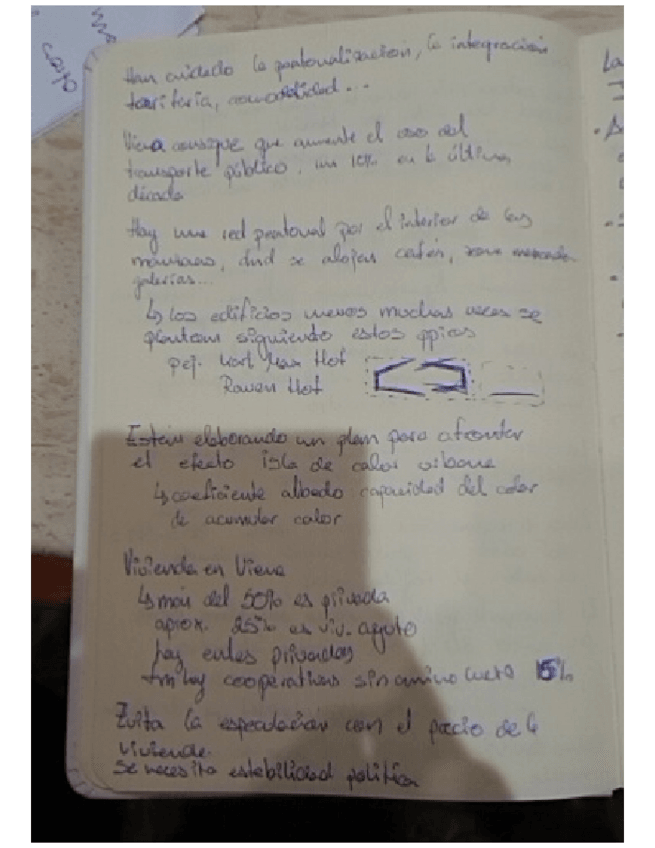 Han cuidado la peatonalización, la integración
tarifaria, comodidad...
Viena consigue que aumente el uso del
transporte público, un 10% en la última
década
Hay una red peatonal por el interior de las
manzanas, dnd se alojan cafés, zona mercado
galerías...
↳ Los edificios nuevos muchas veces se
plantean siguiendo estos ppios
pej. Karl Marx Hof
Raven Hof
Están elaborando un plan para afrontar
el efecto isla de calor urbana
↳ coeficiente albedo capacidad del color
de acumular calor
Vivienda en Viena
↳ más del 50% es privada
aprox. 25% es viv. ayto
hay entes privados
tm hay cooperativas sin animo lucro 15%
Evita la especulación con el precio de la
vivienda.
Se necesita estabilidad política
La